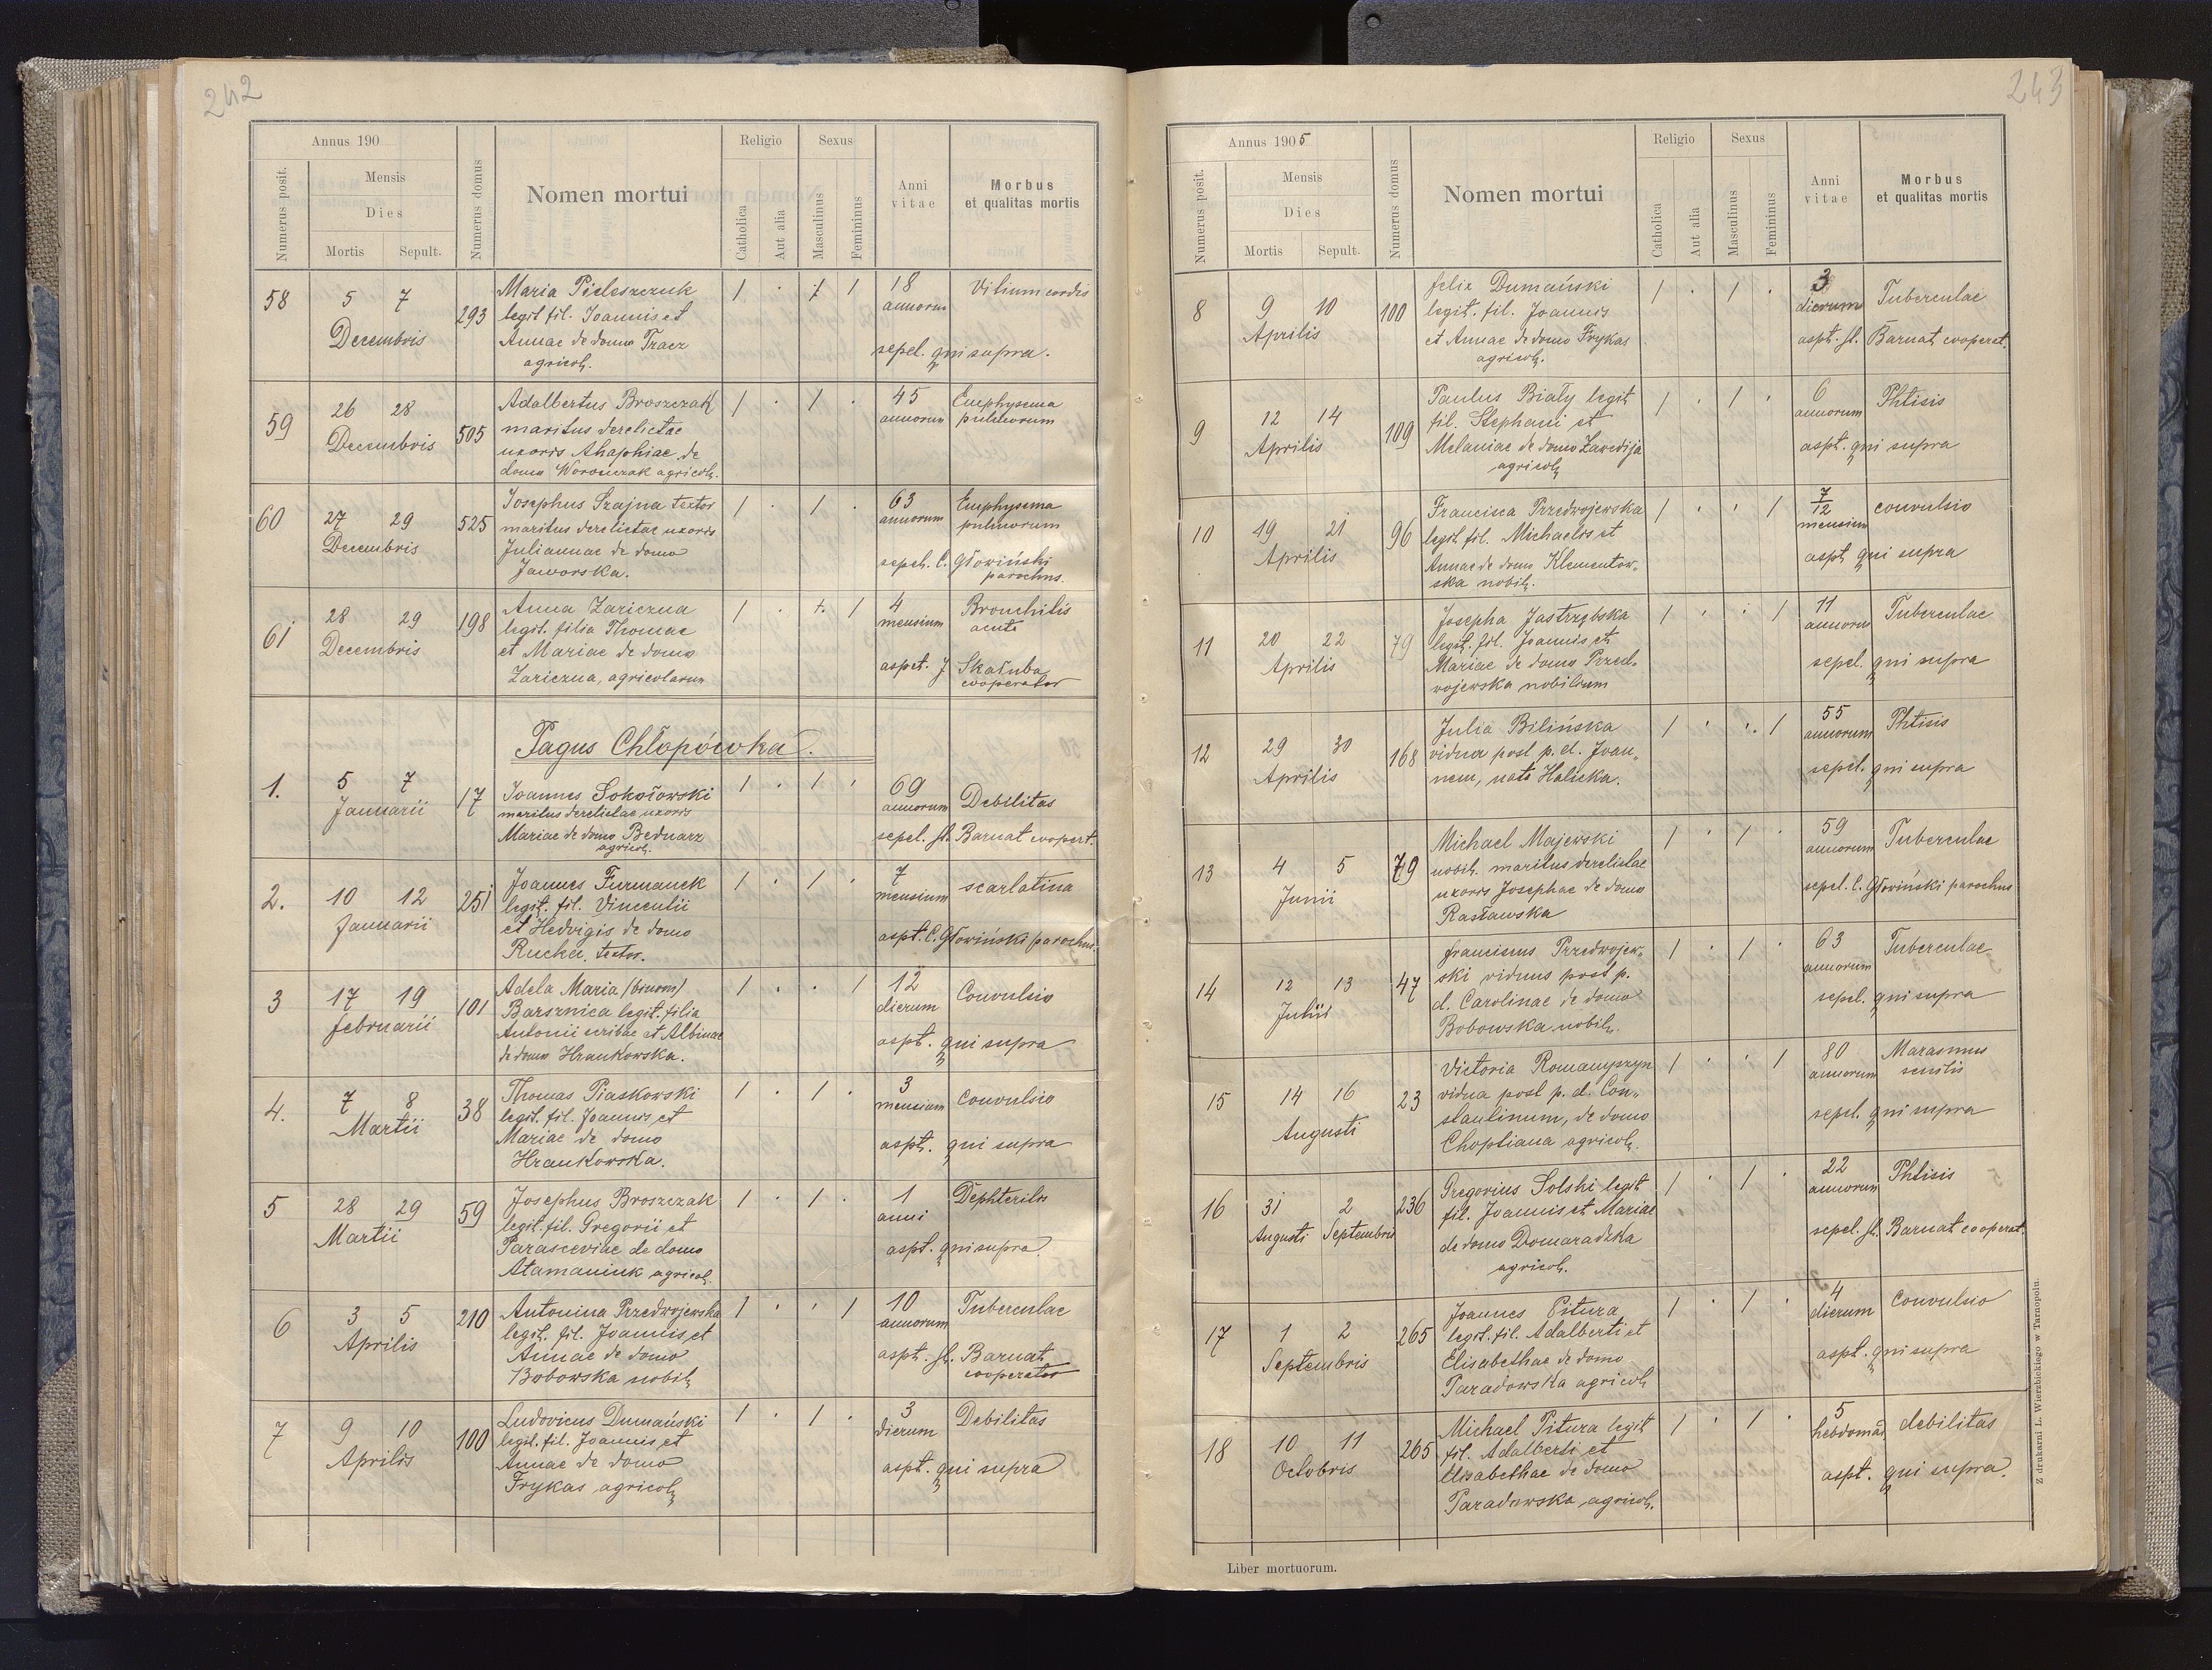 242
Annus 190
Numerus posit.
Mensis
Dies
Mortis Sepult.
Numerus domus
Nomen mortui
Religio
Catholica
Aut alia
Sexus
Masculinus
Femininus
Anni vitae
Morbus
et qualitas mortis
58 5 7 Decembris 293
Maria Pieleszczuk
legit fil. Joannis et
Annae de domo Tracz
agricol.
1 . 1 18 annorum Vitium cordis
sepel. qui supra.
59 26 28 Decembris 505
Adalbertus Broszczak
maritus derelictae
uxoris Ahaphiae de
domo Woronczak agricol.
1 . 1 . 45 annorum Emphysema pulmorum
60 27 29 Decembris 525
Josephus Szajna textor
maritus derelictae uxoris
Juliannae de domo
Jaworska.
1 . 1 . 63 annorum Emphysema pulmorum
sepel. C. Głowiński
parochus.
61 28 29 Decembris 198
Anna Zariczna
legit. filia Thomae
et Mariae de domo
Zariczna, agricolarum
1 . 1 4 mensium Bronchitis acuta
aspet. J Skałuba
cooperator
Pagus Chłopówka.
1. 5 7 Januarii 17
Joannes Sokołowski
maritus derelictae uxoris
Mariae de domo Bednarz
agricol.
1 . 1 . 69 annorum Debilitas
sepel. st. Barnat coopert.
2. 10 12 Januarii 251
Joannes Furmanek
legit. fil. Vincentii
et Hedvigis de domo
Rucka. textor.
1 . 1 . 7 mensium scarlatina
aspt. C. Głowiński parochus.
3 17 19 februarii 101
Adela Maria (binom)
Barsznica legit. filia
Antonii scribae et Albinae
de domo Hrankowska.
1 . . 1 12 dierum Convulsio
aspt. qui supra
4. 7 8 Martii 38
Thomas Piaskowski
legit. fil. Joannis et
Mariae de domo
Hrankowska.
1 . 1 . 3 mensium convulsio
aspt. qui supra
5 28 29 Martii 59
Josephus Broszczak
legit. fil. Gregorii et
Parasceviae de domo
Atamaniuk agricol.
1 . 1 . 1 anni Dephteritis
aspt. qui supra.
6 3 5 Aprilis 210
Antonina Przedwojewska
legit. fil. Joannis et
Annae de domo
Bobowska nobil.
1 . . 1 10 annorum Tuberculae
aspt. st. Barnat
cooperator
7 9 10 Aprilis 100
Ludovicus Dumański
legit. fil. Joannis et
Annae de domo
Frykas agricol.
1 . 1 . 3 dierum Debilitas
aspt. qui supra
243
Annus 1905
Numerus posit.
Mensis
Dies
Mortis Sepult.
Numerus domus
Nomen mortui
Religio
Catholica
Aut alia
Sexus
Masculinus
Femininus
Anni vitae
Morbus
et qualitas mortis
8 9 10 Aprilis 100
felix Dumański
legit. fil. Joannis
et Annae de domo Frykas
agricol.
1 . 1 . 3 dierum Tuberculae
aspt. st. Barnat cooperat.
9 12 14 Aprilis 109
Paulus Biały legit
fil. Stephani et
Melaniae de domo Zawedija
agricol.
1 . 1 . 6 annorum Phtisis
aspt. qui supra
10 19 21 Aprilis 96
Francisca Przedwojewska
legit fil. Michaelis et
Annae de domo Klementow„
ska nobil.
1 . . 1 7/12 mensium convulsio
aspt qui supra
11 20 22 Aprilis 79
Josepha Jastrzębska
legit. fil. Joannis et
Mariae de domo Przed„
wojewska nobilium
1 . . 1 11 annorum Tuberculae
sepel. qui supra
12 29 30 Aprilis 168
Julia Bilińska
vidua post p. d. Joan„
nem, nata Halicka.
1 . . 1 55 annorum Phtisis
sepel. qui supra
13 4 5 Junii 79
Michael Majewski
nobil. maritus derelictae
uxoris Josephae de domo
Rasławska
1 . 1 . 59 annorum Tuberculae
sepel. C. Głowiński parochus
14 12 13 Julii 47
franciscus Przedwojew„
ski viduus post p.
d. Carolinae de domo
Bobowska nobil.
1 . 1 . 63 annorum Tuberculae
sepel. qui supra
15 14 16 Augusti 23
Victoria Romampszyn
vidua post p. d. Con„
stantinum, de domo
Choptiana agricol.
1 . . 1 80 annorum Marasmus senilis
sepel. qui supra
16 31 Augusti 2 Septembris 236
Gregorius Solski legit
fil. Joannis et Mariae
de domo Domaradzka
agricol.
1 . 1 . 22 annorum Phtisis
sepel. st. Barnat cooperat.
17 1 2 Septembris 265
Joannes Pitura
legit. fil. Adalberti et
Elisabethae de domo
Paradowska agricol
1 . 1 . 4 dierum convulsio
aspt. qui supra
18 10 11 Octobris 265
Michael Pitura legit
fil. Adalberti et
Elisabethae de domo
Paradowska agricol.
1 . 1 . 5 hebdomad debilitas
aspt. qui supra.
Liber mortuorum.
Z drukarni L. Wierzbickiego w Tarnopolu.